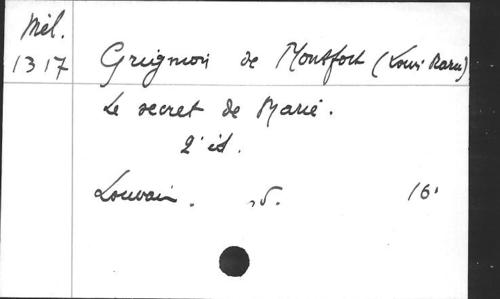 Mél.
1317
Grignion de Montfort (Louis Marie)
Le secret de Marie.
2° éd.
Louvain. 16°